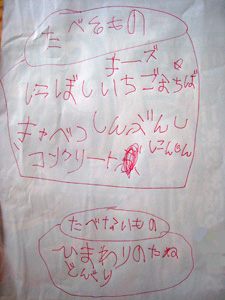 たべるもの
チーズ
にぼしいちごおちば
きゃべつしんぶんし
コンクリートにんじん
たべないもの
ひまわりのたね
どんぐり